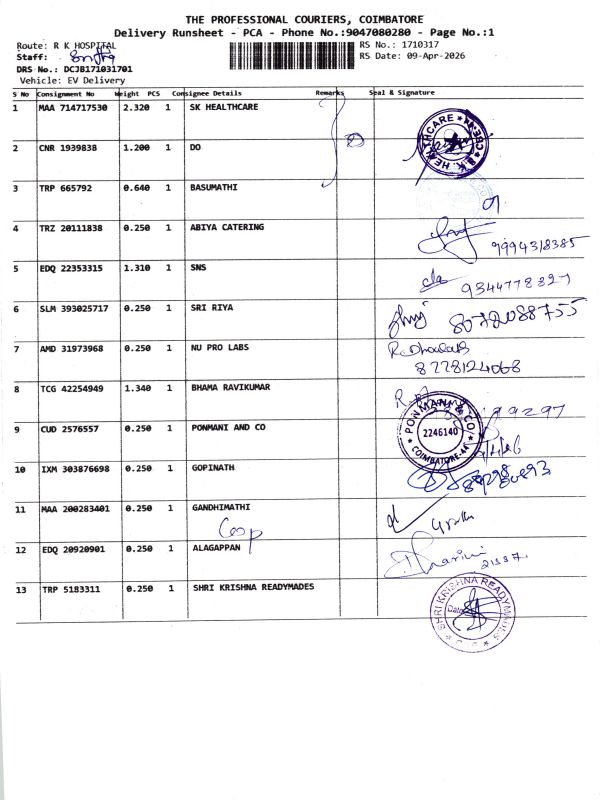 THE PROFESSIONAL COURIERS, COIMBATORE
Delivery Runsheet - PCA - Phone No.:9047080280 - Page No.:1
Route: R K HOSPITAL
RS No.: 1710317
Staff:
RS Date: 09-Apr-2026
DRS No.: DCJB171031701
Vehicle: EV Delivery
S No Consignment No Weight PCS Consignee Details Remarks Seal & Signature
1 MAA 714717530 2.320 1 SK HEALTHCARE
2 CNR 1939838 1.200 1 DO
3 TRP 665792 0.640 1 BASUMATHI
4 TRZ 20111838 0.250 1 ABIYA CATERING
9994318385
5 EDQ 22353315 1.310 1 SNS
9344778327
6 SLM 393025717 0.250 1 SRI RIYA
8072088755
7 AMD 31973968 0.250 1 NU PRO LABS
8778124068
8 TCG 42254949 1.340 1 BHAMA RAVIKUMAR
99297
9 CUD 2576557 0.250 1 PONMANI AND CO
PONMANI & CO
2246140
COIMBATORE-44
10 IXM 303876698 0.250 1 GOPINATH
11 MAA 200283401 0.250 1 GANDHIMATHI
12 EDQ 20920901 0.250 1 ALAGAPPAN
Dharini
21337.
13 TRP 5183311 0.250 1 SHRI KRISHNA READYMADES
SHRI KRISHNA READYMADES
Date